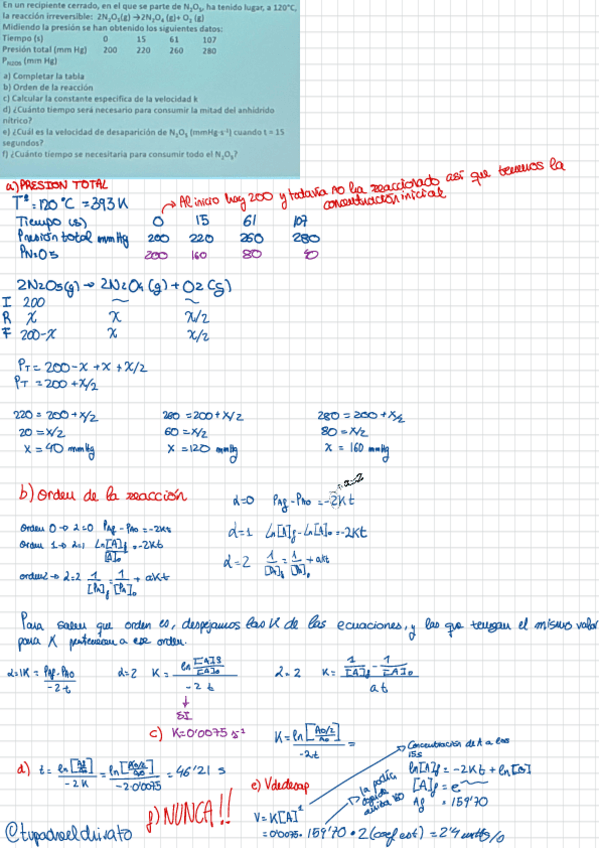 En un recipiente cerrado, en el que se parte de N₂O₅, ha tenido lugar, a 120°C,
la reacción irreversible: 2N₂O₅(g) → 2N₂O₄ (g)+ O₂ (g)
Midiendo la presión se han obtenido los siguientes datos:
Tiempo (s) 0 15 61 107
Presión total (mm Hg) 200 220 260 280
P_N2O5 (mm Hg)
a) Completar la tabla
b) Orden de la reacción
c) Calcular la constante específica de la velocidad k
d) ¿Cuánto tiempo será necesario para consumir la mitad del anhídrido
nítrico?
e) ¿Cuál es la velocidad de desaparición de N₂O₅ (mmHg·s⁻¹) cuando t = 15
segundos?
f) ¿Cuánto tiempo se necesitaría para consumir todo el N₂O₅?
a) PRESION TOTAL
Tª = 120 °C = 393 K
→ Al inicio hay 200 y todavía no ha reaccionado así que tenemos la
concentración inicial
Tiempo (s) 0 15 61 107
Presión total mmHg 200 220 260 280
PN2O5 200 160 80
2N2O5(g) → 2N2O4(g) + O2(g)
I 200 ~ ~
R x x x/2
F 200-x x x/2
PT = 200-x+x+x/2
PT = 200+x/2
220 = 200+x/2 260 = 200+x/2 280 = 200+x/2
20 = x/2 60 = x/2 80 = x/2
x = 40 mmHg x = 120 mmHg x = 160 mmHg
b) Orden de la reacción
a=2
α=0 PAf - PA0 = -2Kt
Orden 0 → α=0 PAf - PA0 = -2Kt
α=1 Ln[A]f - Ln[A]0 = -2Kt
Orden 1 → α=1 Ln[A]f/[A]0 = -2Kt
α=2 1/[A]f = 1/[A]0 + aKt
orden2 → α=2 1/[P]f = 1/[P]0 + aKt
Para saber que orden es, despejamos las K de las ecuaciones, y las que tengan el mismo valor
para K pertenecen a ese orden.
α=1 K = PAf-PA0/-2t α=2 K = ln [A]f/[A]0/-2t α=2 K = 1/[A]f - 1/[A]0/at
↓
SI
c) K=0'0075 s⁻¹ K = ln[A0/2/A0]/-2t =
d) t = ln[Af/A0]/-2K = ln[A0/2/A0]/-2·0'0075 = 46'21 s
e) Vdedesap
V = K[A]¹
= 0'0075 · 159'70 · 2 (coef est) = 2'4
Concentración de A a los
15s
ln[A]f = -2Kt + ln[A]0
[A]f = e
Af = 159'70
f) NUNCA!!
@tupadreeldivato